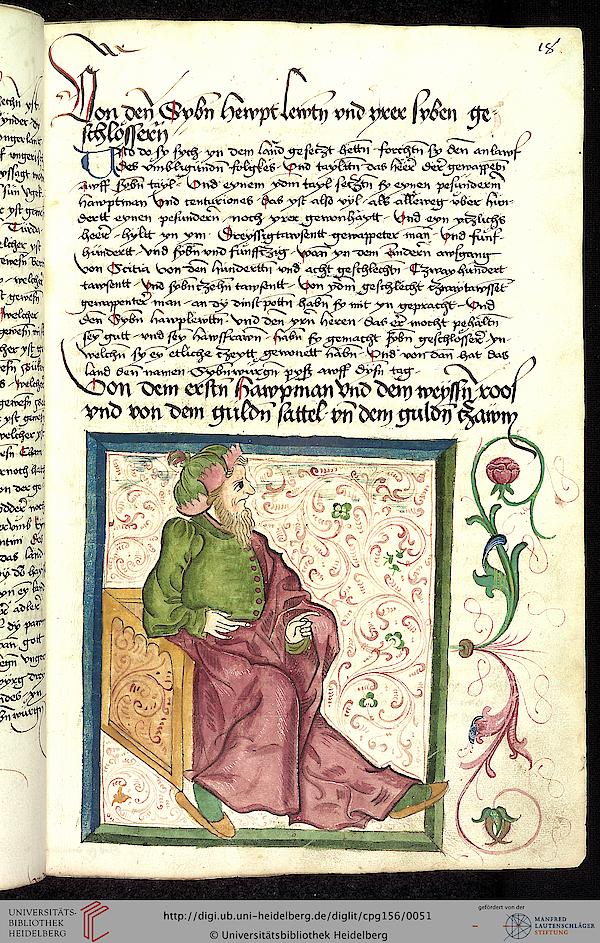 18
Von den Sybn hewpt lewtn vnd yrer syben ge-
schlössern
Also do sy sych yn dem land gesetzt hettn forchtn sy den anlawf
des vmbligundn folgkes Vnd tayltn das heer der gewappetn
Awff sybn tayl Vnd eynem ydm tayl setztn sy eynen pesundern
hawptman Vnd centuriones das yst also vyl als alleweg vber hun-
dertt eynen pesundern noch yrer gewonhaytt Vnd eyn ytzlichs
heer hyltt yn ym Dreyssigtawsentt gewappeter man Vnd funf-
hundertt Vnd sybn vnd funfftzig wan yn dem Andern awsgang
von Scitia von den hundertn vnd acht geschlechtn Czway hundert
tawsentt Vnd sybntzehn tawsentt Von ydm geschlecht tzwaytawsset
gewappenter man an dy dinst pottn habn sy mit yn gepracht Vnd
den Sybn hawplewttn Vnd den yrn heren das er mocht pehaltn
sey gutt vnd sey hawsfrawn habn sy gemacht sybn geschlösser yn
welchn sy ey etliche tzeytt gewonett habn Vnd von dan hat das
land den namen Sybnwurgn pyss awff dysn tag
Von dem erstn hawpman Vnd dem weyssn roos
vnd von dem guldn sattel vn dem guldn Zawm
UNIVERSITÄTS-
BIBLIOTHEK
HEIDELBERG
http://digi.ub.uni-heidelberg.de/diglit/cpg156/0051
© Universitätsbibliothek Heidelberg
gefördert von der
MANFRED
LAUTENSCHLÄGER
STIFTUNG